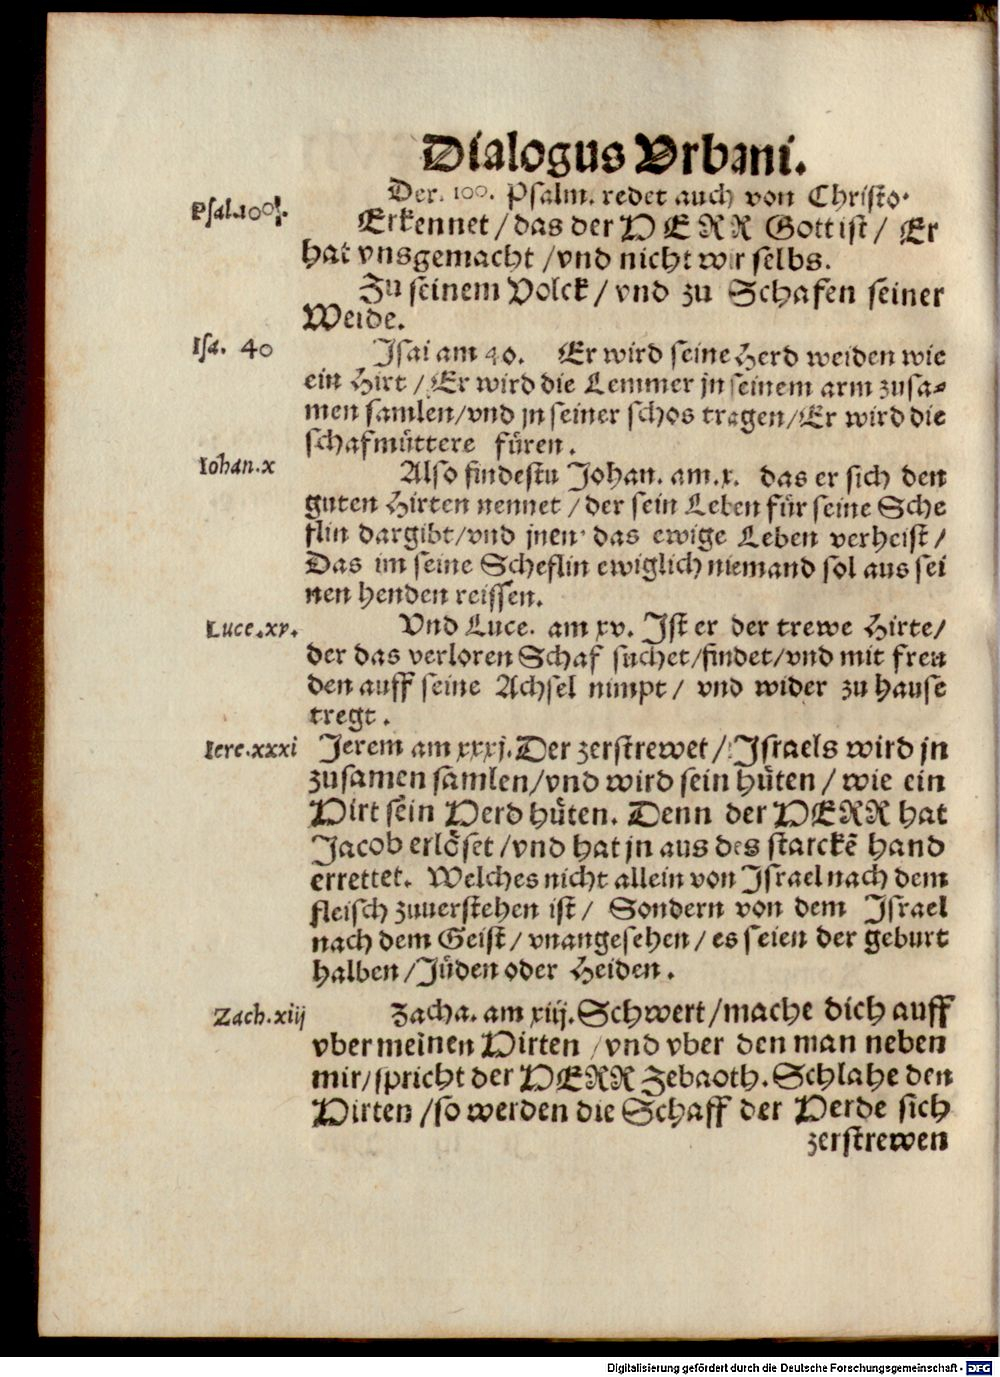 Dialogus Vrbani.
Der. 100. Psalm. redet auch von Christo.
Psal.100.
Erkennet / das der HERR Gott ist / Er
hat vns gemacht / vnd nicht wir selbs.
Zu seinem Volck / vnd zu Schafen seiner
Weide.
Isa. 40
Isai am 40. Er wird seine Herd weiden wie
ein Hirt / Er wird die Lemmer jn seinem arm zusa-
men samlen / vnd jn seiner schos tragen / Er wird die
schafmütter e füren.
Iohan.x
Also findestu Johan. am.x. das er sich den
guten Hirten nennet / der sein Leben für seine Sche
flin dargibt / vnd jnen das ewige Leben verheist /
Das im seine Scheflin ewiglich niemand sol aus sei
nen henden reissen.
Luce.xv.
Vnd Luce. am xv. Ist er der trewe Hirte /
der das verloren Schaf suchet / findet / vnd mit freu
den auff seine Achsel nimpt / vnd wider zu hause
tregt.
Iere.xxxi
Jerem am xxxj. Der zerstrewet / Israels wird jn
zusamen samlen / vnd wird sein hüten / wie ein
Hirt sein Herd hüten. Denn der HERR hat
Jacob erlöset / vnd hat jn aus des starckē hand
errettet. Welches nicht allein von Israel nach dem
fleisch zuuerstehen ist / Sondern von dem Israel
nach dem Geist / vnangesehen / es seien der geburt
halben / Jüden oder Heiden.
Zach.xiij
Zacha. am xiij. Schwert / mache dich auff
vber meinen Hirten / vnd vber den man neben
mir / spricht der HERR Zebaoth. Schlahe den
Hirten / so werden die Schaff der Herde sich
zerstrewen
Digitalisierung gefördert durch die Deutsche Forschungsgemeinschaft - DFG